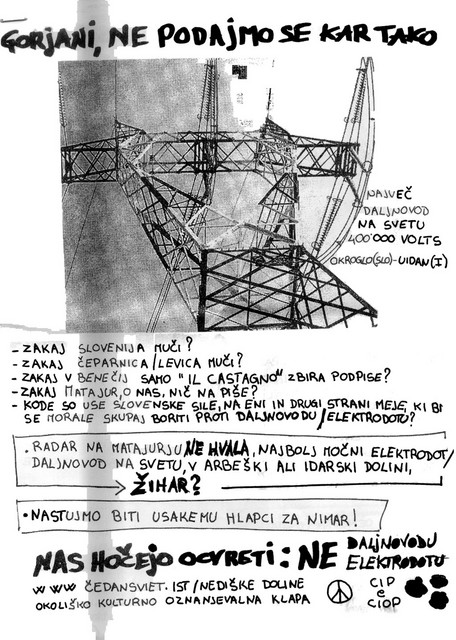 GORJANI, NE PODAJMO SE KAR TAKO
NAJVEČ
DALJNOVOD
NA SVETU
400'000 VOLTS
OKROGLO(SLO)-UIDAN(I)
- ZAKAJ SLOVENIJA MUČI?
- ZAKAJ ČEPARNICA/LEVICA MUČI?
- ZAKAJ V BENEČIJ SAMO "IL CASTAGNO" ZBIRA PODPISE?
- ZAKAJ MATAJUR, O NAS, NIČ NA PIŠE?
- KODE SO USE SLOVENSKE SILE, NA ENI IN DRUGI STRANI MEJE, KI BI
SE MORALE SKUPAJ BORITI PROTI DALJNOVODU/ELEKTRODOTU?
. RADAR NA MATAJURJU NE HVALA, NAJBOLJ MOČNI ELEKTRODOT/
DALJNOVOD NA SVETU, V ARBEŠKI ALI IDARSKI DOLINI,
ŽIHAR?
• NASTUJMO BITI USAKEMU HLAPCI ZA NIMAR!
NAS HOČEJO OCVRETI: NE DALJNOVODU
ELEKTRODOTU
WWW ČEDANSVIET. IST/NEDIŠKE DOLINE
OKOLIŠKO KULTURNO OZNANJEVALNA KLAPA
CIP
e
CIOP